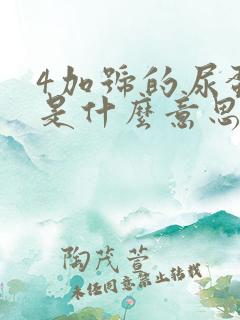 4加號的尿蛋
是什麼意思
陶茂萱
未經同意禁止轉載